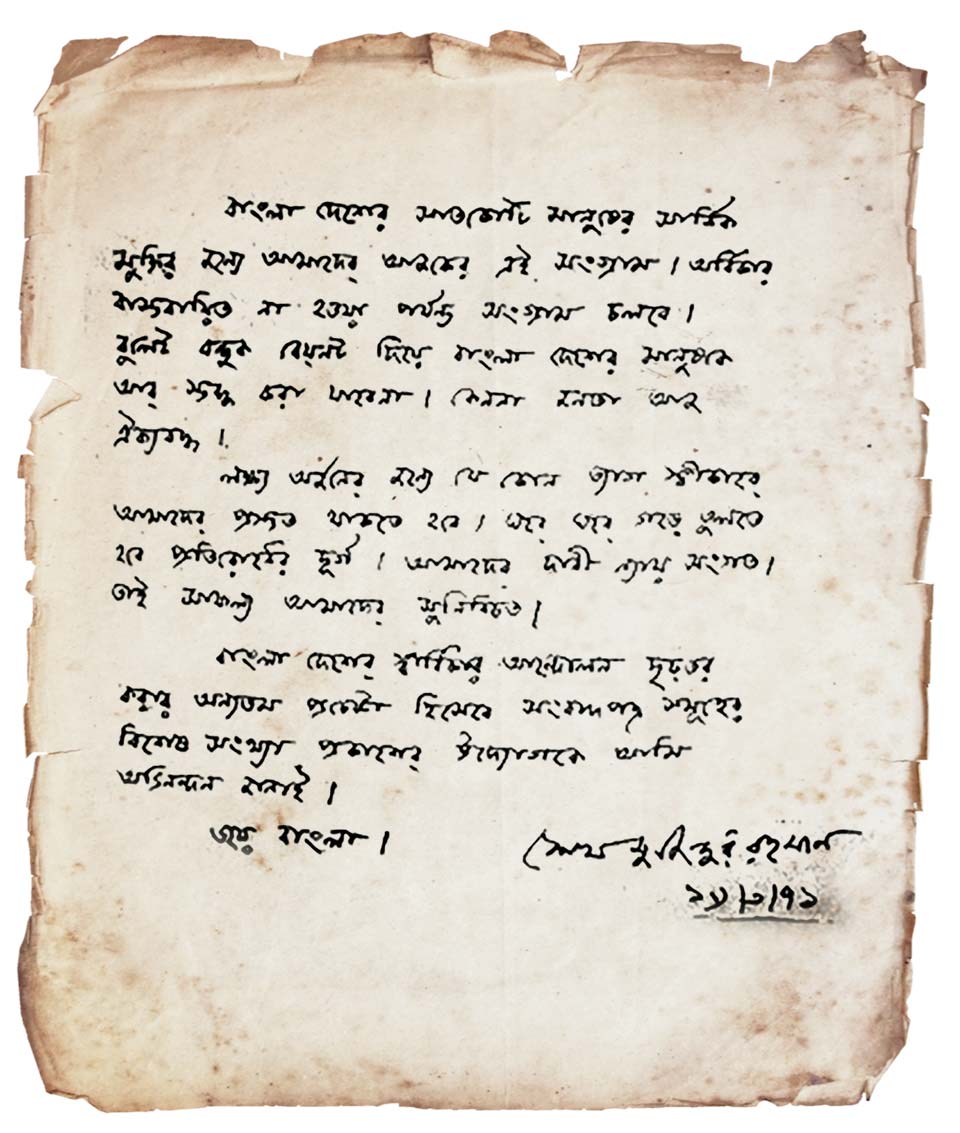 বাংলা দেশের সাতকোটি মানুষের সার্বিক
মুক্তির জন্যে আমাদের আজকের এই সংগ্রাম। অধিকার
বাস্তবায়িত না হওয়া পর্যন্ত সংগ্রাম চলবে।
বুলেট বন্দুক বেয়নট দিয়ে বাংলা দেশের মানুষকে
আর স্তব্ধ করা যাবেনা। কেননা জনতা আজ
ঐক্যবদ্ধ।
লক্ষ্য অর্জনের জন্যে যে কোন ত্যাগ স্বীকারে
আমাদের প্রস্তুত থাকতে হবে। ঘরে ঘরে গড়ে তুলতে
হবে প্রতিরোধের দূর্গ। আমাদের দাবী ন্যায় সংগত।
তাই সাফল্য আমাদের সুনিশ্চিত।
বাংলা দেশের স্বাধিকার আন্দোলন দৃঢ়তর
করার অন্যতম প্রচেষ্টা হিসেবে সংবাদপত্র সমূহের
বিশেষ সংখ্যা প্রকাশের উদ্যোগকে আমি
অভিনন্দন জানাই।
জয় বাংলা।
শেখ মুজিবুর রহমান
/৩/৭১